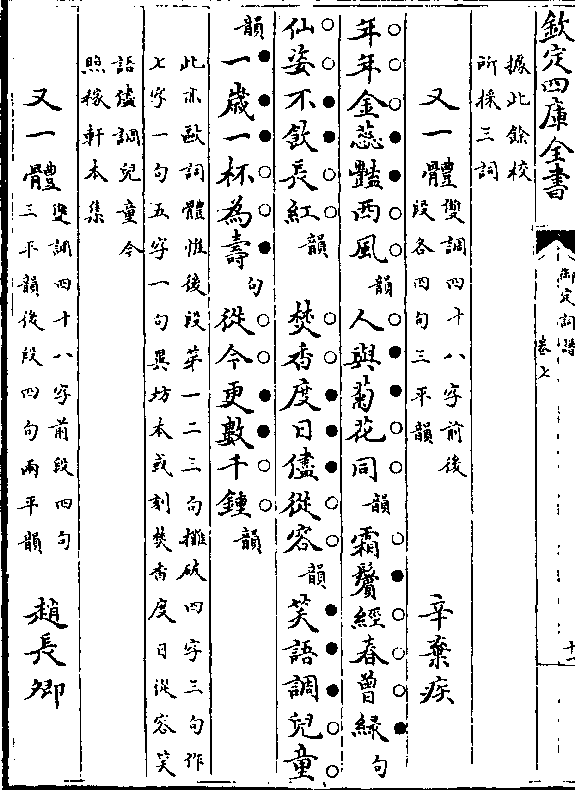 欽定四庫全書
御定詞譜
卷七
十一
據此餘校
所採三詞
又一體
雙調四十八字前後
段各四句三平韻
辛棄疾
年年金蕊豔西風韻人與菊花同韻霜鬢經春曾緑句
仙姿不飲長紅韻焚香度日儘從容韻笑語調兒童
韻一歲一杯為壽句從今更數千鍾韻
此亦歐詞體惟後段第一二三句攤破四字三句作
七字一句五字一句異坊本或刻焚香度日從容笑
語儘調兒童今
照稼軒本集
又一體
雙調四十八字前段四句
三平韻後段四句兩平韻
趙長卿